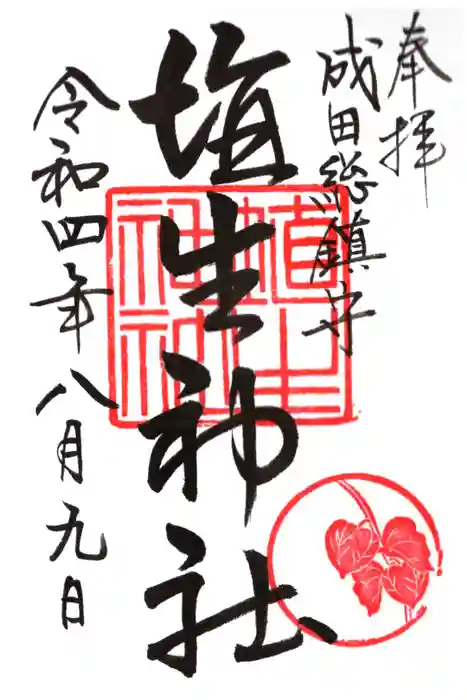 奉拝
成田総鎮守
埴生神社
令和四年八月九日